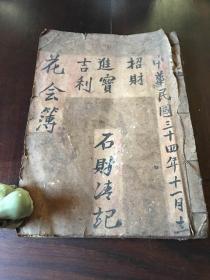 中華民國三十四年十一月立
招財
進寶
吉利
石財清記
花会簿